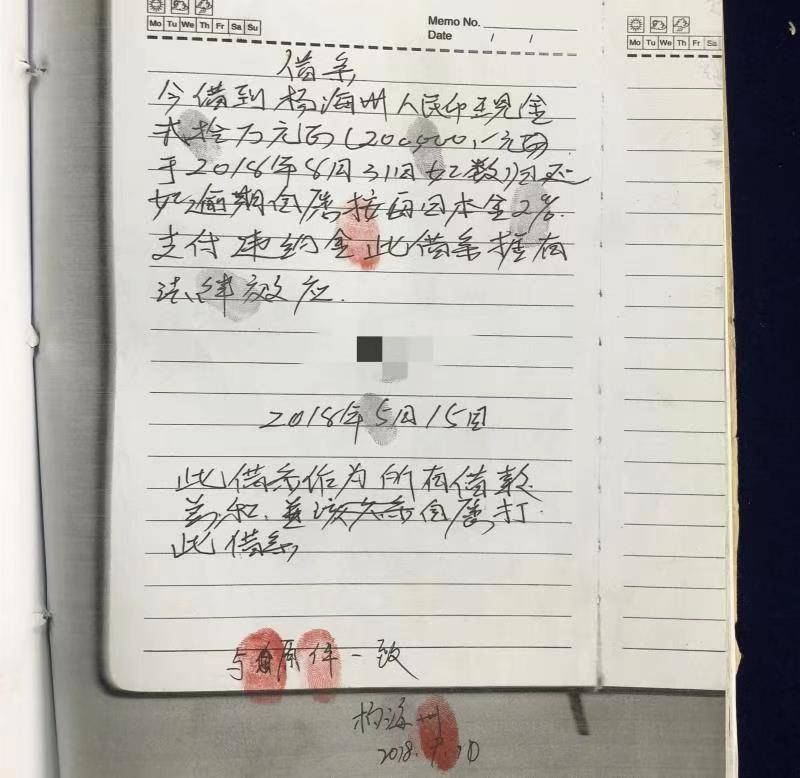 Memo No.
Date / /
Mo Tu We Th Fr Sa Su
Mo Tu We Th Fr Sa
借条
今借到杨海州人民币现金
贰拾万元正(200000.)元正
于2018年8月31日如数归还
如逾期自愿按每日本金2%
支付违约金此借条拥有
法律效应.
2018年5月15日
此借条作为所有借款
自愿打
此借条
与原件一致
杨海州
2018.9.10